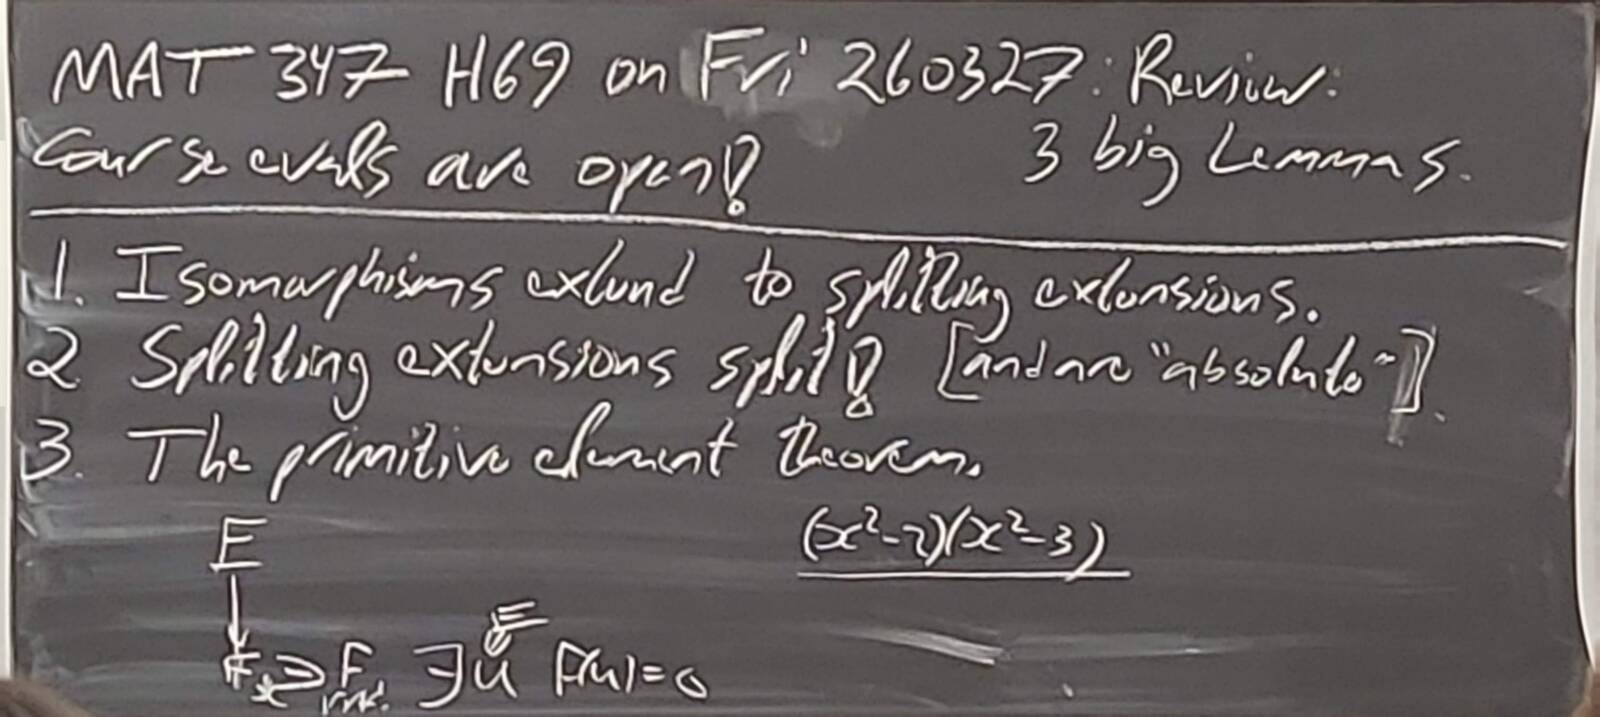 MAT 347 H69 on Fri 260327: Review:
Course evals are open! 3 big Lemmas.
1. Isomorphisms extend to splitting extensions.
2. Splitting extensions split! [and are "absolute"].
3. The primitive element theorem.
E (x²-2)(x²-3)
E
F_x ∋ f irred. ∃u f(u)=0